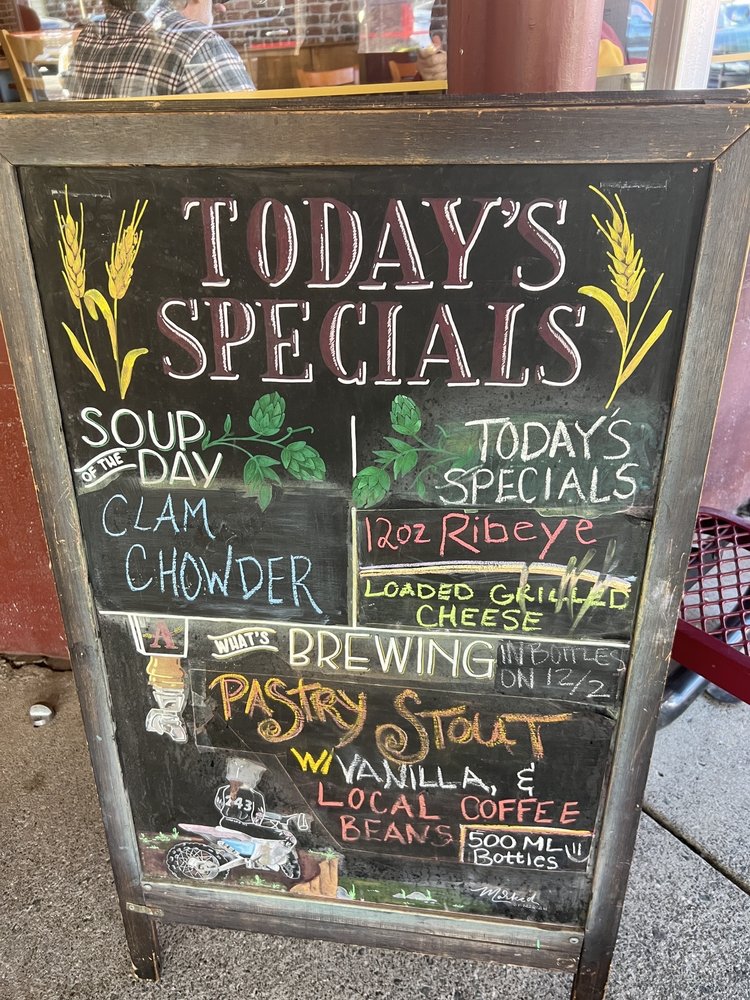 TODAY'S
SPECIALS
SOUP
OF THE DAY
CLAM
CHOWDER
TODAY'S
SPECIALS
12oz Ribeye
LOADED GRILLED
CHEESE
A
WHAT'S BREWING
IN BOTTLES
ON 12/2
PASTRY STOUT
W/ VANILLA, &
LOCAL COFFEE
BEANS
500 ML
Bottles
243